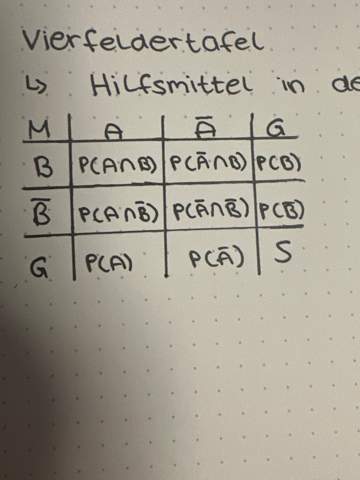 Vierfeldertafel
↳ Hilfsmittel in de
M A A̅ G
B P(A∩B) P(A̅∩B) P(B)
B̅ P(A∩B̅) P(A̅∩B̅) P(B̅)
G P(A) P(A̅) S